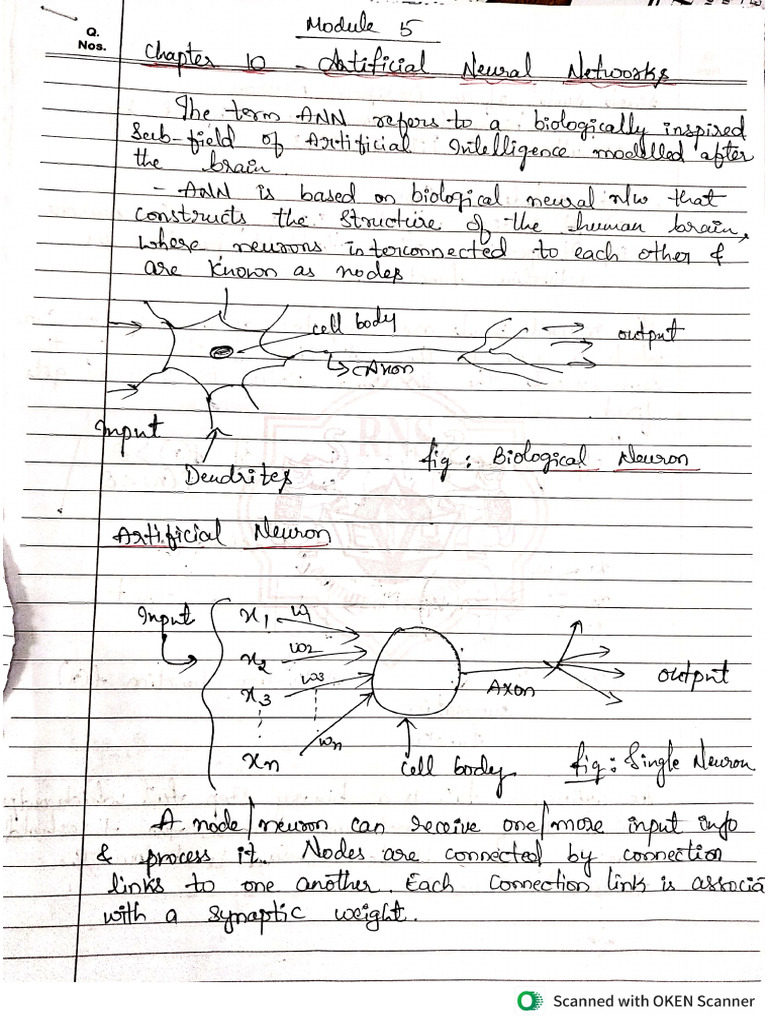 Module 5
Q.
Nos.
Chapter 10 - Artificial Neural Networks
The term ANN refers to a biologically inspired
sub-field of Artificial Intelligence modelled after
the brain.
- ANN is based on biological neural n/w that
constructs the structure of the human brain,
where neurons interconnected to each other &
are known as nodes
cell body
output
Axon
Input
fig : Biological Neuron
Dendrites
Artificial Neuron
Input
x1 w1
x2 w2
x3 w3
Axon
output
xn wn
cell body
fig : Single Neuron
A node/neuron can receive one/more input info
& process it. Nodes are connected by connection
links to one another. Each connection link is associa
with a synaptic weight.
Scanned with OKEN Scanner